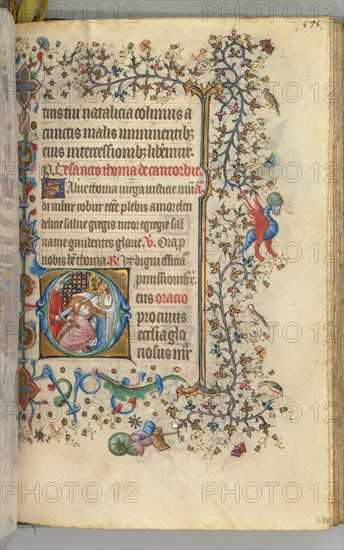 575
tius tui natalicia colimus a
cunctis malis imminentibz
eius intercessionibz liberemur.
De sancto thoma de
Salue thoma uirga iusticie mundi
robur ecclesie plebis amor cleri
delicie salue gregis tutor egregie sal
ua tue gaudentes glorie. V. Ora p
nobis bte thoma. R. Vt digni efficia
promissionibz
oracio
pro cuius
ecclesia glo
riosus